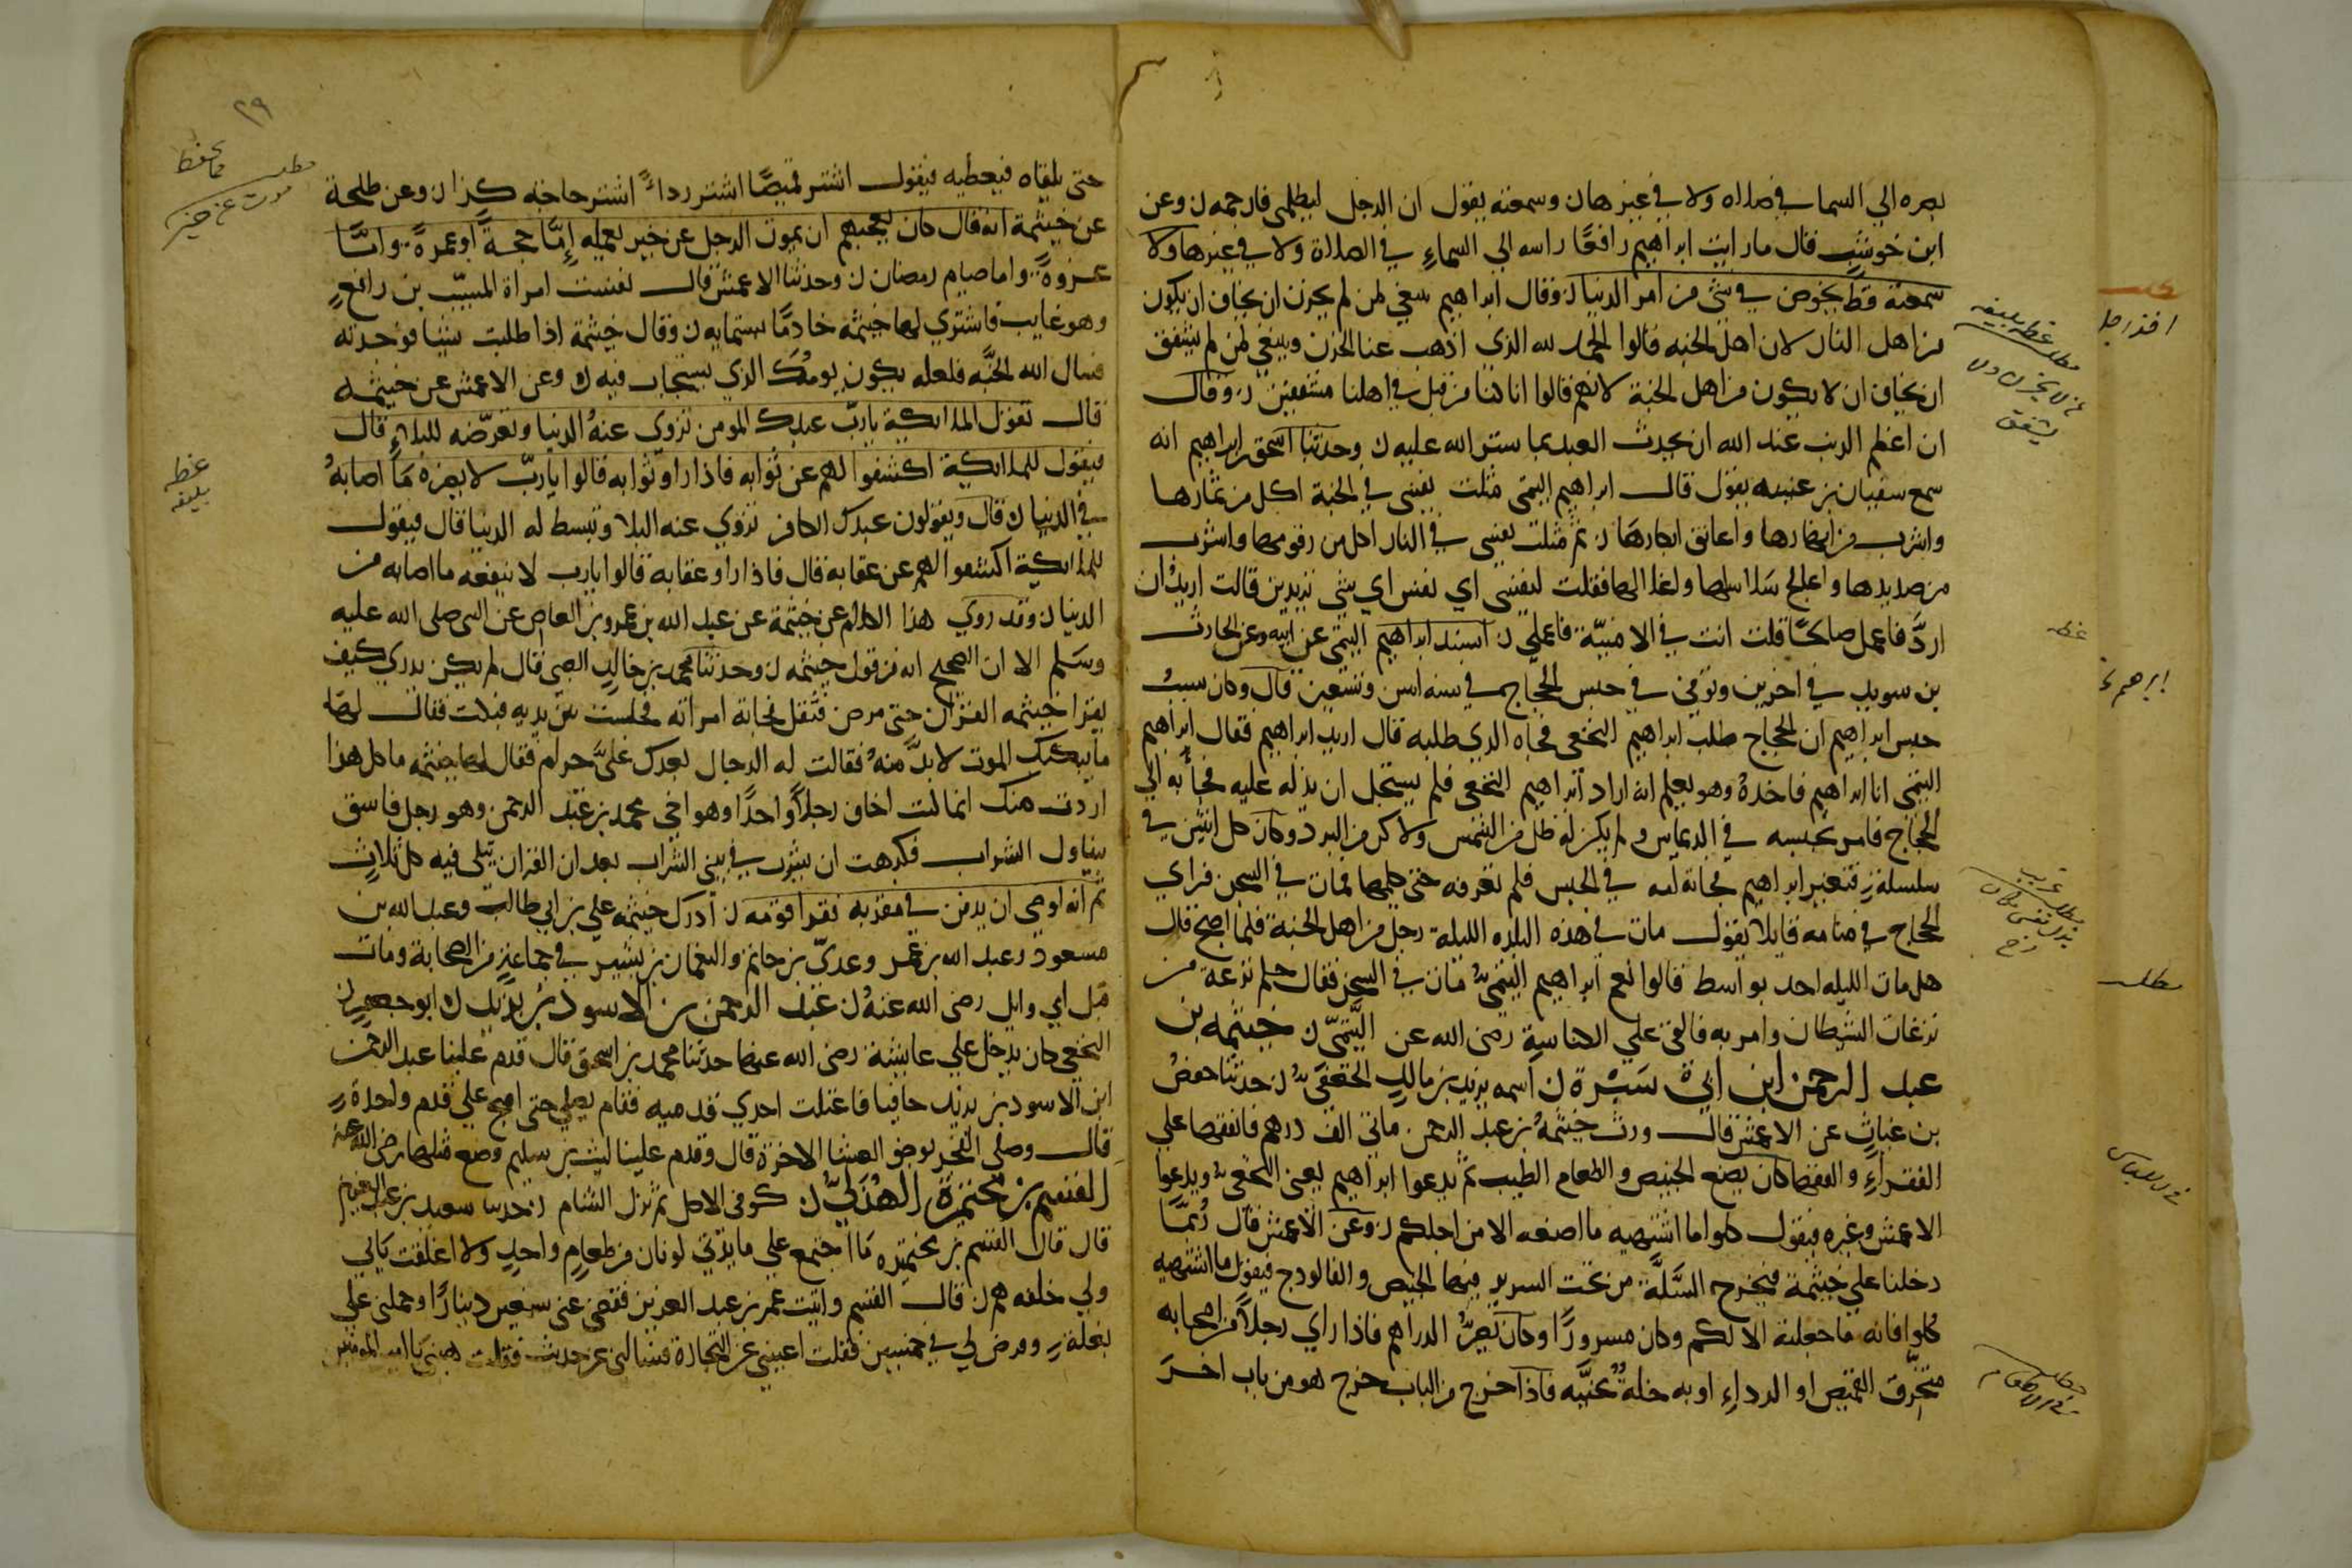 بصره الي السما في صلاه ولا في غيرها ن وسمعته يقول ان الرجل ليظلمني فارحمه ن وعن
ابن حوشب قال ما رايت ابراهيم رافعًا راسه الي السماءِ في الصلاة ولا في غيرها ولا
سمعته قط يخوض في شئ من امر الدنيا ن وقال ابراهيم ينبغي لمن لم يحزن ان يخاف ان يكون
من اهل النار لان اهل الجنه قالوا الحمد لله الذي اذهب عنا الحزن وينبغي لمن لم يشفق
ان يخاف ان لا يكون من اهل الجنة لانهم قالوا انا كنا من قبل في اهلنا مشفقين ن وقال
ان اعظم الذنب عند الله ان يحدث العبد بما ستر الله عليه ن وحدثنا اسحق بن ابراهيم انه
سمع سفيان بن عيينه يقول قال ابراهيم التيمي مثلت نفسي في الجنة اكل من ثمارها
واشرب من انهارها واعانق ابكارها ن ثم مثلت نفسي في النار اكل من زقومها واشرب
من صديدها واعالج سلاسلها واغلالها فقلت لنفسي اي نفس اي شئ تريدين قالت اريد ان
اردَّ فاعمل صالحًا قلت انت في الامنيّة فاعملي ن اسند ابراهيم التيمي عن ابيه وعن الحارث
بن سويد في اخرين وتوفي في حبس الحجاج في سنه اثنين وتسعين قال وكان سببُ
حبس ابراهيم ان الحجاج طلب ابراهيم النخعي فجاه الذي طلبه قال اريد ابراهيم فقال ابراهيم
التيمي انا ابراهيم فاخذهُ وهو يعلم انه اراد ابراهيم النخعي فلم يستحل ان يدله عليه فجاء به الي
الحجاج فامر بحبسه في الديماس ولم يكن له ظل من الشمس ولا كن من البرد وكان كل اثنين في
سلسلةٍ فتغير ابراهيم فجاته امه في الحبس فلم تعرفه حتي كلمها فمات في السجن فراي
الحجاج في منامه قايلا يقول مات في هذه البلده الليلة رجل من اهل الجنة فلما اصبح قال
هل مات الليله احد بواسط قالوا نعم ابراهيم التيمي مات في السجن فقال حلم نزغة من
نزغات الشيطان وامر به فالقي علي الكناسةِ رضي الله عن التَّيْمِيّ ن خيثمه بن
عبد الرحمن ابن ابي سَبْرة ن اسمه يزيد بن مالكٍ الجعفيّ ن حدثنا حفصُ
بن غياثٍ عن الاعمش قال ورث خيثمةُ بن عبد الرحمن مائتي الف درهم فانفقها علي
الفقراءِ والفقها كان يصنع الخبيص والطعام الطيب ثم يدعوا ابراهيم يعني النخعي ويدعوا
الاعمش وغيره فيقول كلوا ما اشتهيه ما اصنعه الا من اجلكم ن وعن الاعمش قال رُبمَّا
دخلنا علي خيثمة فيخرج السَّلَّة من تحت السرير فيها الخبيص والفالودج فيقول ما اشتهيه
كلوا فانه ما جعلته الا لكم وكان مسرورًا وكان يَصُرُّ الدراهم فاذا راي رجلًا من اصحابه
متخرّق القميص او الرداءِ او به خلةٌ تحيَّنه فاذا خرج من الباب خرج هو من باب اخرَ
مطلب عظه بليغه
من لا يحزن ولا
يشفق
ابراهيم
مطلب
٢٩
حتى يلقاه فيعطيه فيقول اشتر قميصًا اشتر رداءً اشتر حاجة كذا ن وعن طلحة
عن خيثمة انه قال كان يعجبهم ان يموت الرجل عن خير يعمله إِمّا حجةً او عمرةً وامَّا
غزوةً واما صيام رمضان ن وحدثنا الاعمش قال نفست امراة المسيّب بن رافعٍ
وهو غايب فاشتري لها خيثمه خادمًا بستمايه ن وقال خيثمة اذا طلبت شيئا فوجدته
فسال الله الجنَّه فلعله يكون يومُك الذي يستجاب فيه ن وعن الاعمش عن خيثمه
قال تقول الملائكية يا ربّ عبدك المومن تزوي عنهُ الدنيا وتعرّضه للبلاءِ قال
فيقول للملائكية اكشفوا لهم عن ثوابه فاذا راوا ثوابه قالوا يا ربّ لا يضره مَا اصابهُ
في الدنيا ن قال ويقولون عبدك الكافر تزوي عنه البلا وتبسط له الدنيا قال فيقول
للملائكية اكشفوا لهم عن عقابه قال فاذا راو عقابه قالوا يا رب لا ينفعه ما اصابه من
الدنيا ن وقد روي هذا الكلام عن خيثمة عن عبد الله بن عمرو بن العاص عن النبي صلى الله عليه
وسَلم الا ان الصحيح انه من قول خيثمه ن وحدثنا محمد بن خالد الضبي قال لم يكن ندري كيف
يقرا خيثمه القران حتى مرض فثقل فجاته امراته فجلست بين يديه فبكت فقال لها
ما يبكيك الموت لا بدَّ منهُ فقالت له الرجال بعدك عليَّ حرام فقال لها خيثمه ما كل هذا
اردت منك انما كنت اخاف رجلًا واحدًا وهو اخي محمد بن عبد الرحمن وهو رجل فاسق
يتناول الشراب فكرهت ان يشرب في بيتي الشراب بعد ان القران يتلى فيه كل ثلاثٍ
ثم انه اوصي ان يدفن في مقبرة فقرا قومه ن ادرك خيثمه علي بن ابي طالب وعبد الله بن
مسعود وعبد الله بن عمر وعديّ بن حاتم والنعمان بن بشير في جماعةٍ من الصحابة ومات
قبل ابي وايل رضي الله عنهُ ن عبد الرحمن بن الاسود بن يزيد ن ابو حفصٍ
النخعي كان يدخل علي عايشة رضي الله عنها حدثنا محمد بن اسحق قال قدم علينا عبد الرحمن
ابن الاسود بن يزيد حاجا فاعتلت احدي قدميه فقام يصلي حتى اصبح علي قدم واحدةٍ
قال وصلى الفجر بوضو العشا الاخرة قال وقدم علينا ليث بن سليم وصنع مثلها رضي الله عنه
القسم بن مخيمرة الهُذليّ ن كوفي الاصل ثم نزل الشام ن حدثنا سعيد بن عبد العزيز
قال قال القسم بن مخيمره مَا اجتمع علي مايدتي لونان من طعامٍ واحدٍ ولا اغلقت بَابي
ولي خلفه هم ن قال القسم واتيت عمر بن عبد العزيز فقضى عني سبعين دينارًا وحملني علي
بغلةٍ وفرض لي في خمسين فقلت اغنيتني عن التجارة فسالني عن حديث فقلت هنني يا امير المومنين
عظه
بليغه